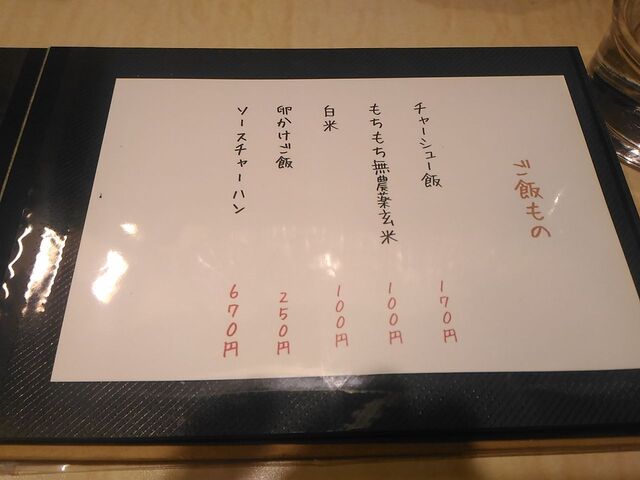 ご飯もの
チャーシュー飯
170円
もちもち無農薬玄米
100円
白米
100円
卵かけご飯
250円
ソースチャーハン
670円